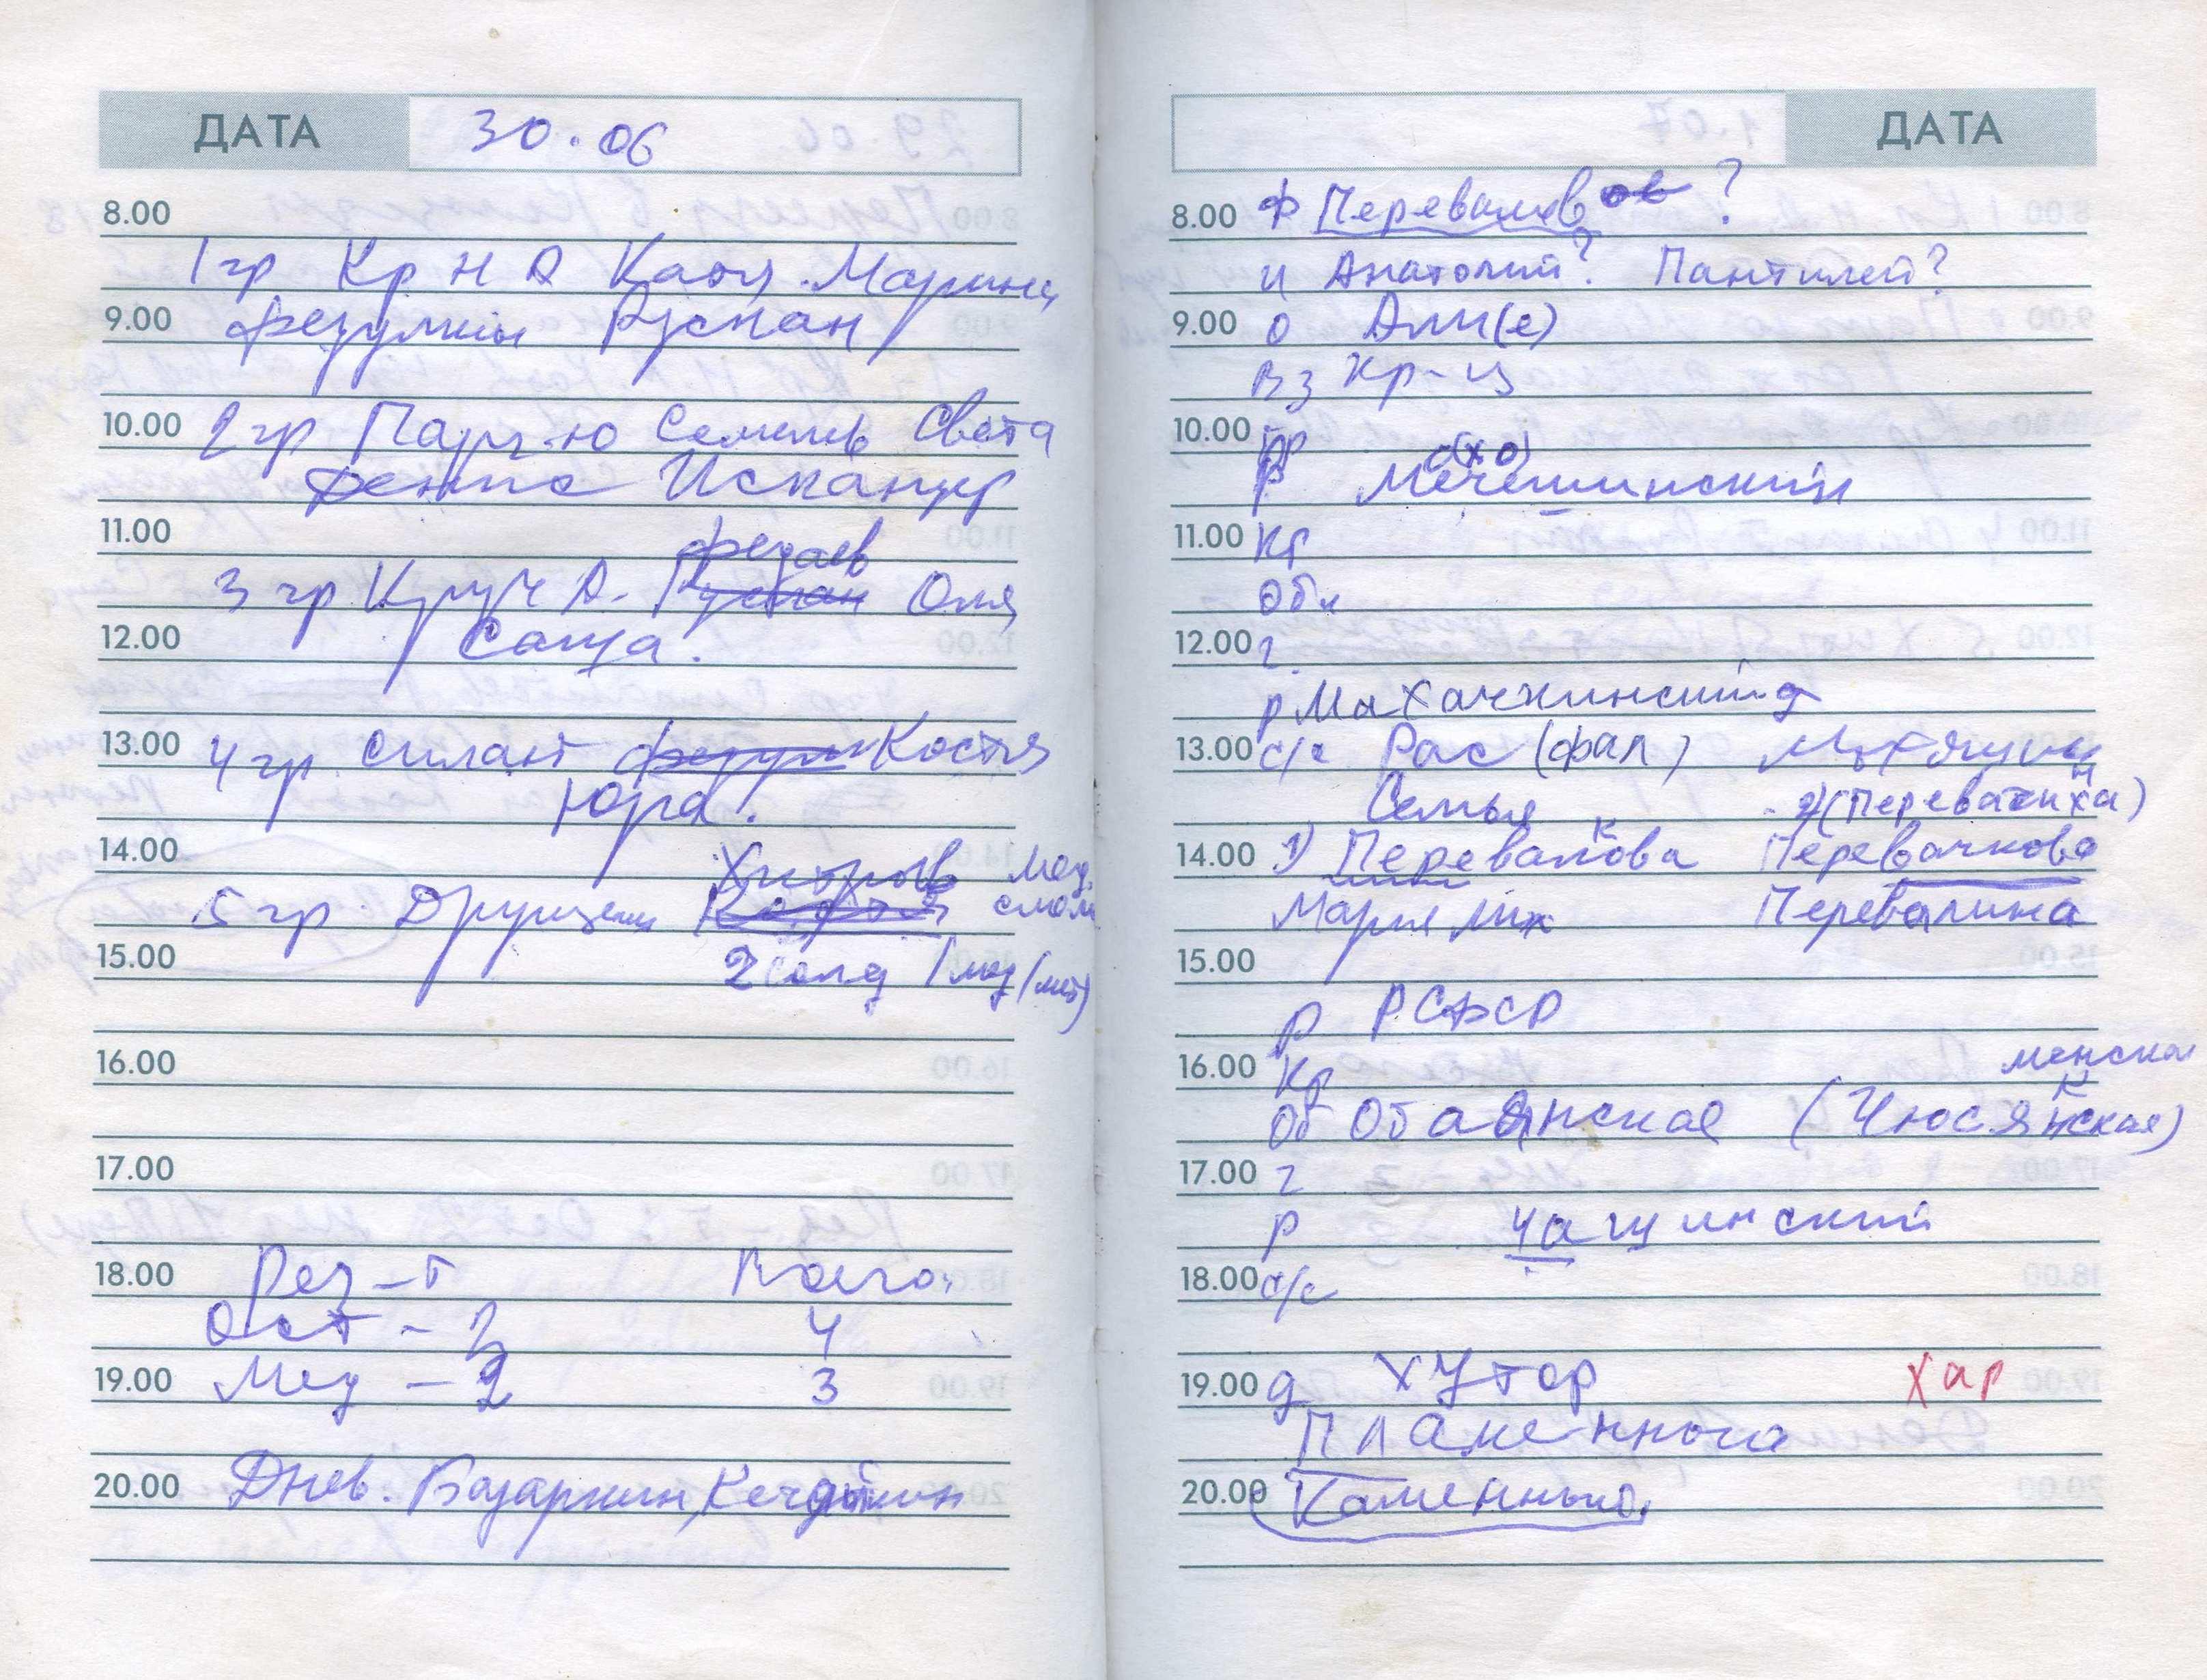 ДАТА 30.06
8.00
1 гр Кр Н А Катя. Марина
9.00
Руслан
10.00 2 гр Семень Света
Денис Искандер
11.00
3 гр Круч А. Руслан Оля
12.00 Саша.
13.00 4 гр Силант Костя
Юра.
14.00 Хитров Мед.
5 гр Костя смол
15.00 2 солд 1 мед
16.00
17.00
18.00 Рез-т Всего.
Ост - 3 4
19.00 Мед - 2 3
20.00 Днев. Базаркин,
ДАТА
8.00 Ф Перевалов ов ?
и Анатолий? Пантилей?
9.00 о Али(е)
Вз Кр-ц
10.00 Гр
(хо)
Р Мечетинский
11.00 Кр
Обл
12.00 г.
р Махачкинский д
13.00 с/с Рас (фал)
Семья
14.00 1) Перевалова Перевачкова
Мария Перевалина
15.00
Р РСФСР
16.00 Кр менская
Об Обаянская (Чюсянская)
17.00 г
Р Чащинский
18.00 с/с
19.00 д Хутор Хар
Пламенного
20.00 Каменный.